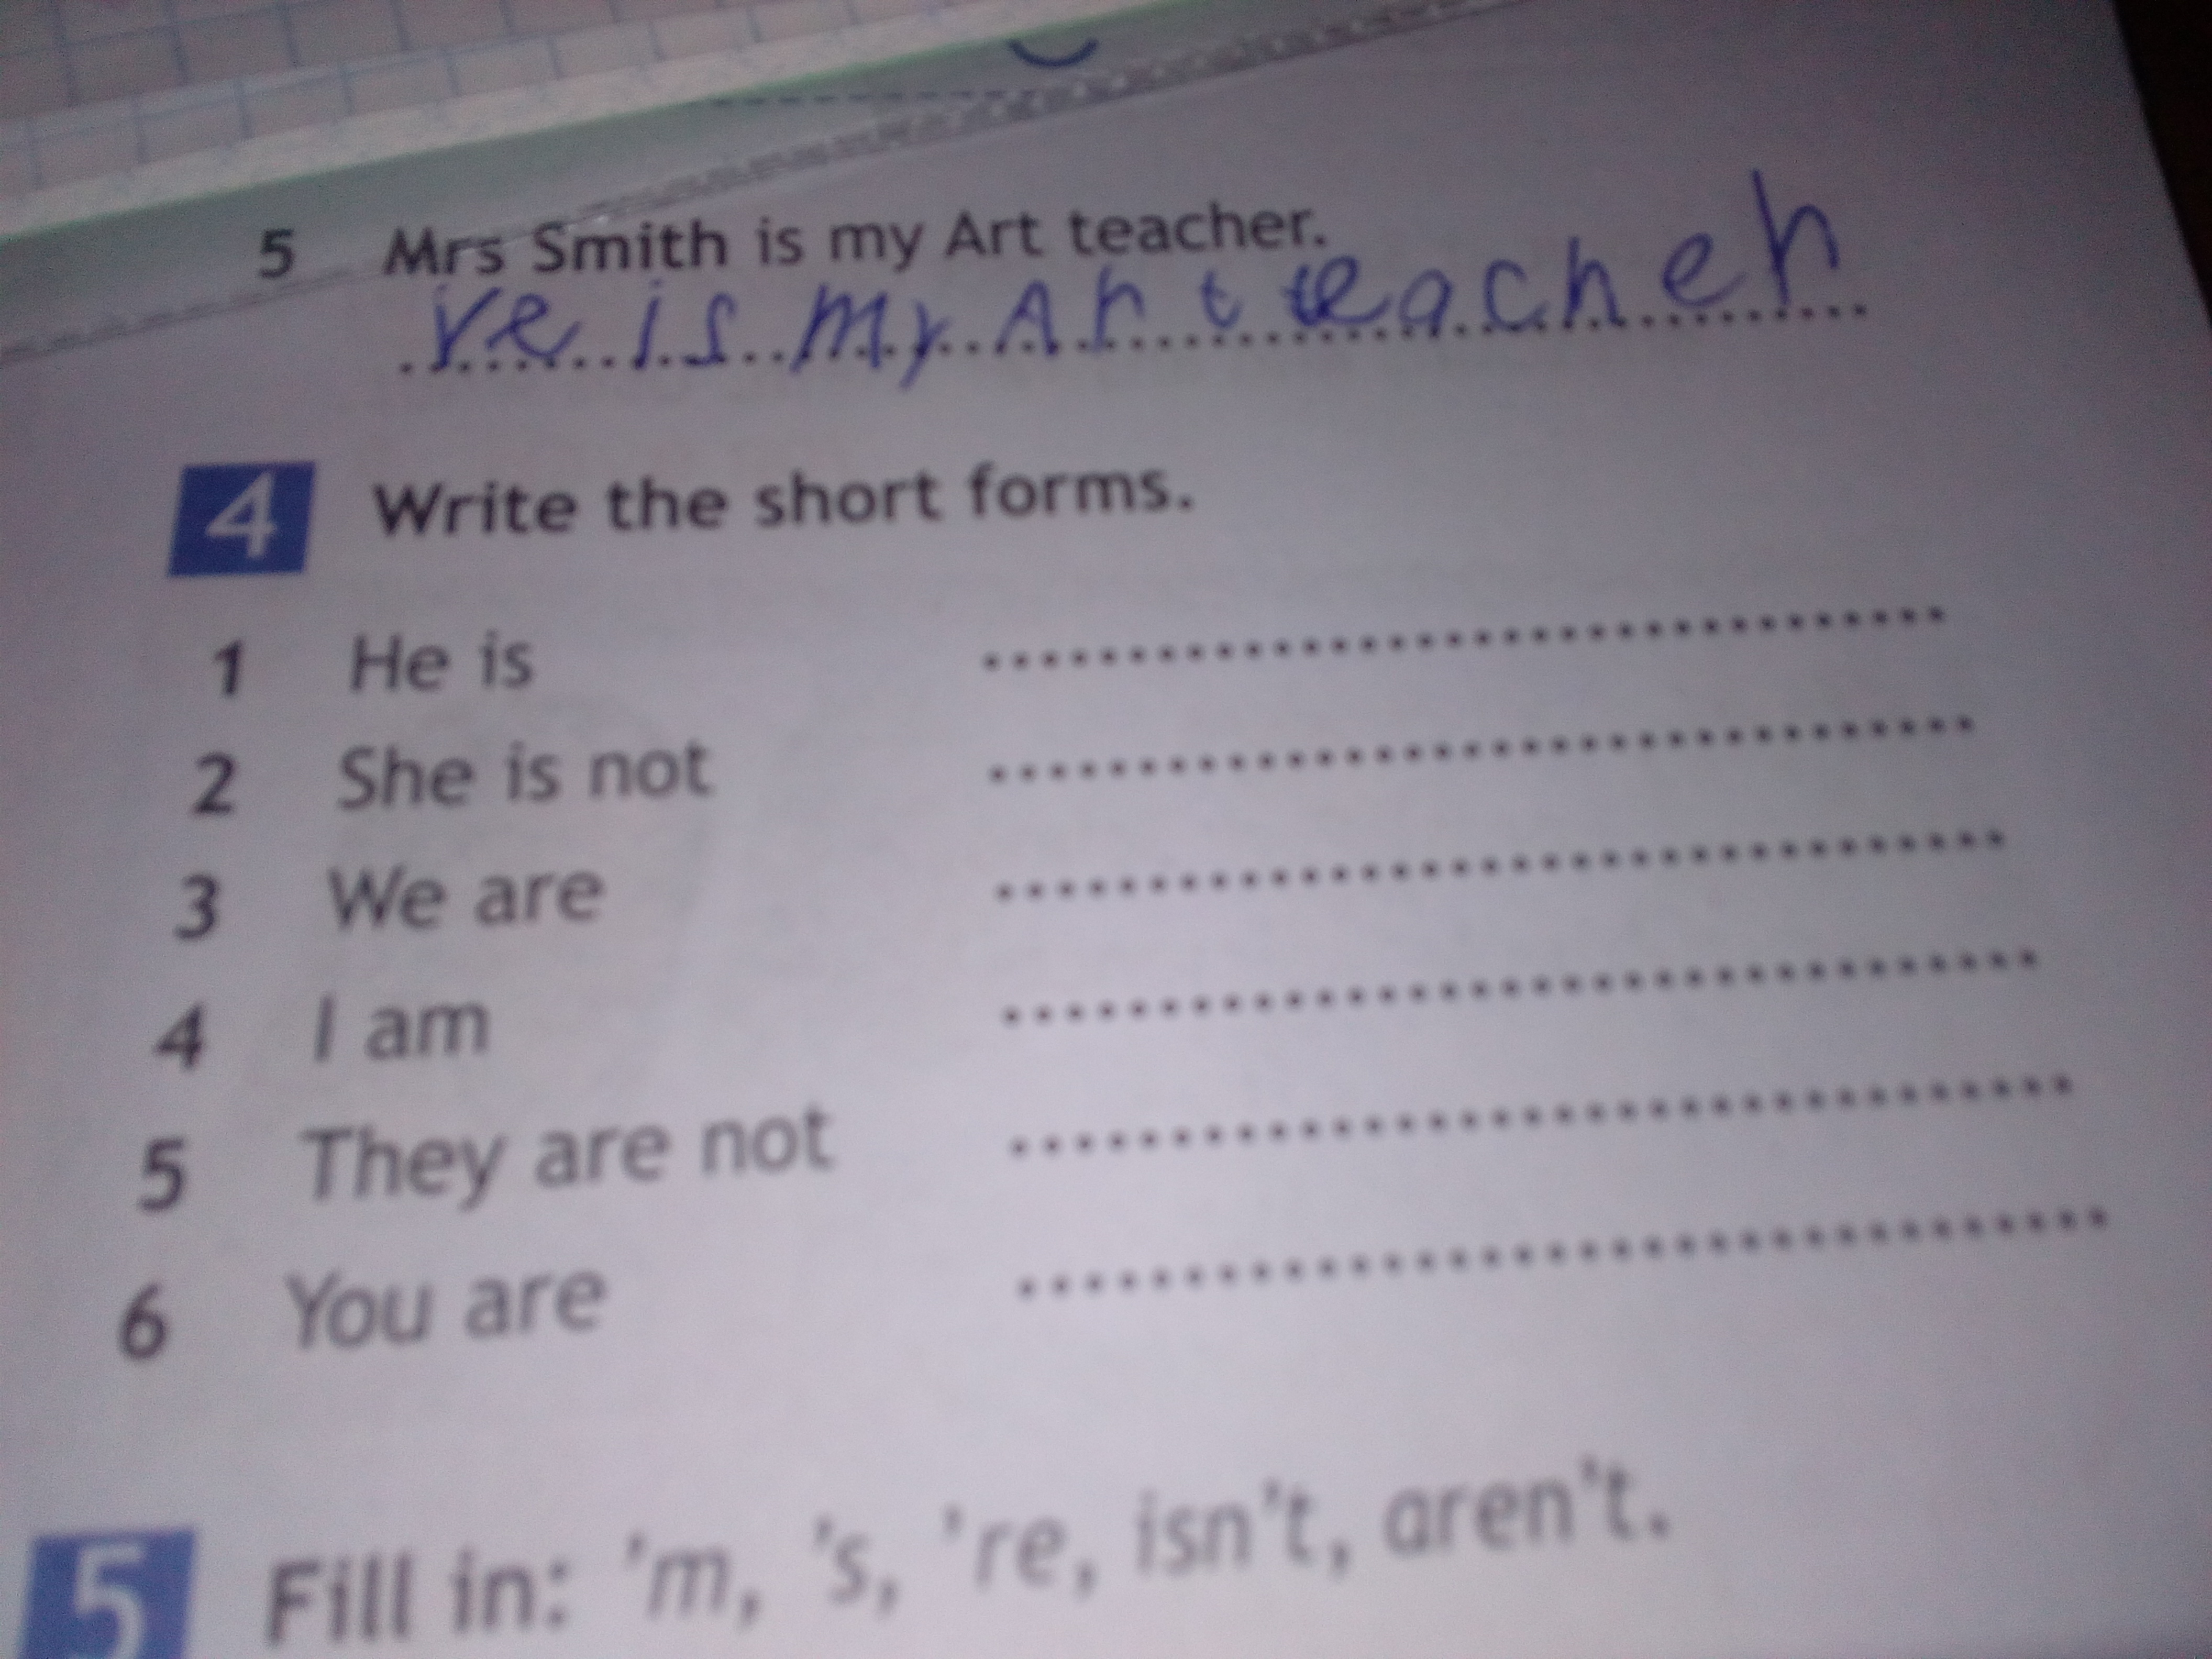 5 Mrs Smith is my Art teacher.
is my Art teacher
4 Write the short forms.
1 He is
2 She is not
3 We are
4 I am
5 They are not
6 You are
5 Fill in: 'm, 's, 're, isn't, aren't.